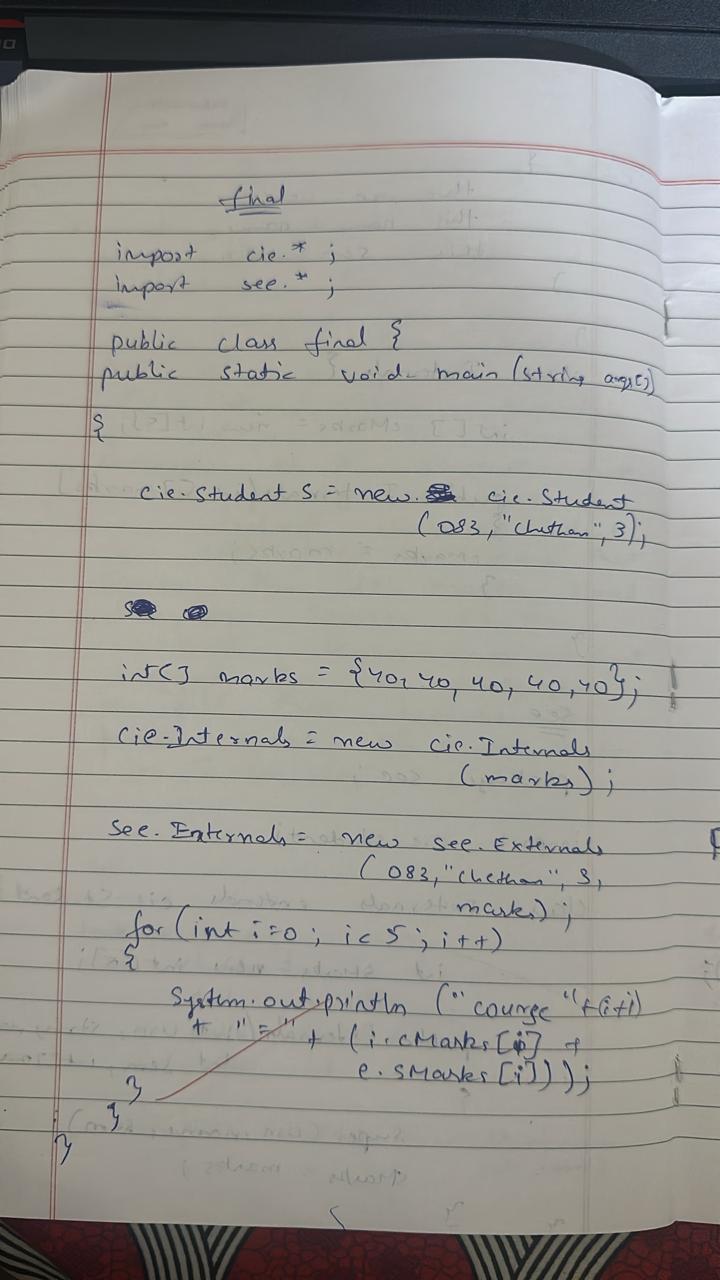 final
import cie.* ;
import see.* ;
public class final {
public static void main (string args[])
{
cie.Student s = new. cie.Student
(083, "Chethan", 3);
int[] marks = {40, 40, 40, 40, 40};
cie.Internals = new cie.Internals
(marks) ;
see. Externals = new see. Externals
(083, "Chethan", 3,
marks) ;
for (int i=0 ; i< 5 ; i++)
{
System.out.println (" courge "+(i+i)
+ " = " + (i.cMarks[i] +
e.sMarks[i]));
}
}
}